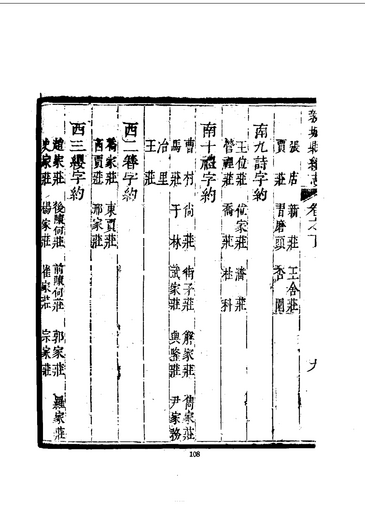 縣志 卷之下 九
張店 新莊 王舍莊
賈莊 磨頭 香園
南九詩字約
王位莊 位家莊 潘莊
管裡莊 喬莊 杜科
南十禮字約
曹村 尚莊 衛子莊 解家莊 喬家莊
馬莊 于林 武家莊 興隆莊 尹家務
冶里
王莊
西二簪字約
喬家莊 東賈莊
西賈莊 邢家莊
西三纓字約
趙家莊 後陳何莊 前陳何莊 郭家莊 羅家莊
史家莊 楊家莊 崔家莊 宗家莊
108